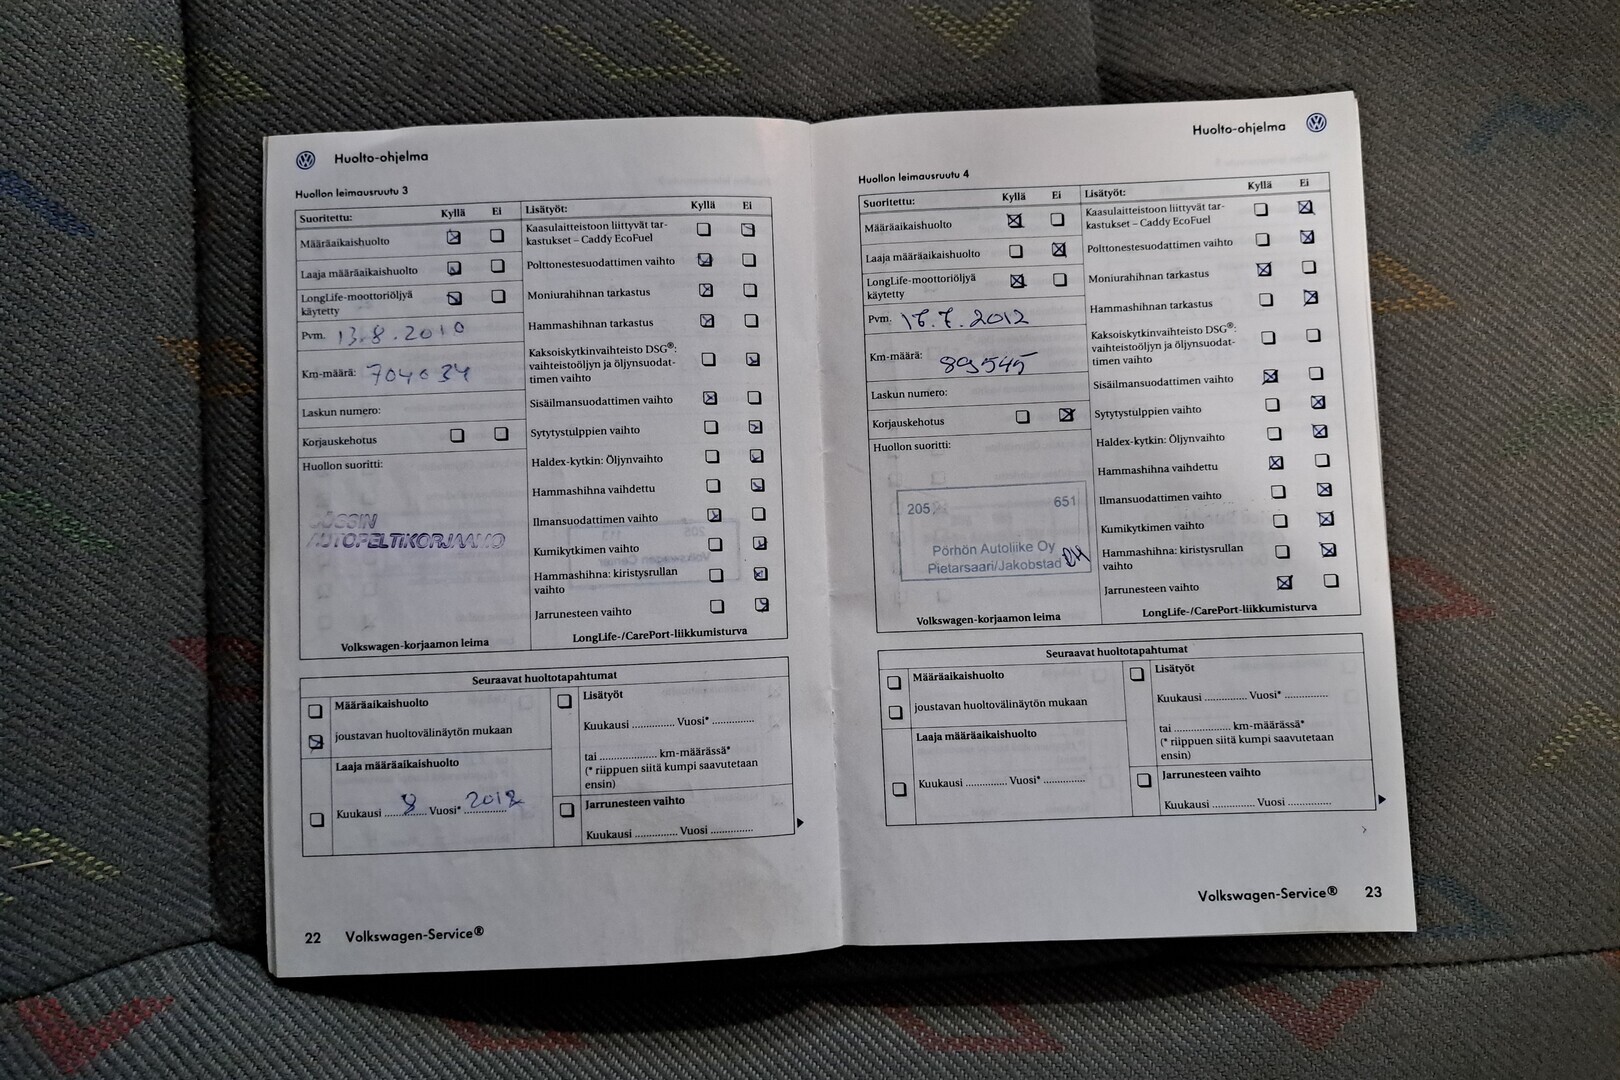 Huolto-ohjelma
Huollon leimausruutu 3
Suoritettu: Kyllä Ei
Määräaikaishuolto
Laaja määräaikaishuolto
LongLife-moottoriöljyä
käytetty
Pvm. 13.8.2010
Km-määrä:
Laskun numero:
Korjauskehotus
Huollon suoritti:
AUTOPELTIKORJAAMO
Volkswagen-korjaamon leima
Lisätyöt: Kyllä Ei
Kaasulaitteistoon liittyvät tar-
kastukset – Caddy EcoFuel
Polttonestesuodattimen vaihto
Moniurahihnan tarkastus
Hammashihnan tarkastus
Kaksoiskytkinvaihteisto DSG®:
vaihteistoöljyn ja öljynsuodat-
timen vaihto
Sisäilmansuodattimen vaihto
Sytytystulppien vaihto
Haldex-kytkin: Öljynvaihto
Hammashihna vaihdettu
Ilmansuodattimen vaihto
Kumikytkimen vaihto
Hammashihna: kiristysrullan
vaihto
Jarrunesteen vaihto
LongLife-/CarePort-liikkumisturva
Seuraavat huoltotapahtumat
Määräaikaishuolto
joustavan huoltovälinäytön mukaan
Laaja määräaikaishuolto
Kuukausi ...8... Vuosi* ...2012...
Lisätyöt
Kuukausi .............. Vuosi* ..............
tai ................... km-määrässä*
(* riippuen siitä kumpi saavutetaan
ensin)
Jarrunesteen vaihto
Kuukausi .............. Vuosi ..............
22 Volkswagen-Service®
Huolto-ohjelma
Huollon leimausruutu 4
Suoritettu: Kyllä Ei
Määräaikaishuolto
Laaja määräaikaishuolto
LongLife-moottoriöljyä
käytetty
Pvm. 17.7.2012
Km-määrä: 89545
Laskun numero:
Korjauskehotus
Huollon suoritti:
205 651
Pörhön Autoliike Oy
Pietarsaari/Jakobstad
Volkswagen-korjaamon leima
Lisätyöt: Kyllä Ei
Kaasulaitteistoon liittyvät tar-
kastukset – Caddy EcoFuel
Polttonestesuodattimen vaihto
Moniurahihnan tarkastus
Hammashihnan tarkastus
Kaksoiskytkinvaihteisto DSG®:
vaihteistoöljyn ja öljynsuodat-
timen vaihto
Sisäilmansuodattimen vaihto
Sytytystulppien vaihto
Haldex-kytkin: Öljynvaihto
Hammashihna vaihdettu
Ilmansuodattimen vaihto
Kumikytkimen vaihto
Hammashihna: kiristysrullan
vaihto
Jarrunesteen vaihto
LongLife-/CarePort-liikkumisturva
Seuraavat huoltotapahtumat
Määräaikaishuolto
joustavan huoltovälinäytön mukaan
Laaja määräaikaishuolto
Kuukausi .............. Vuosi* ..............
Lisätyöt
Kuukausi .............. Vuosi* ..............
tai ................... km-määrässä*
(* riippuen siitä kumpi saavutetaan
ensin)
Jarrunesteen vaihto
Kuukausi .............. Vuosi ..............
Volkswagen-Service® 23